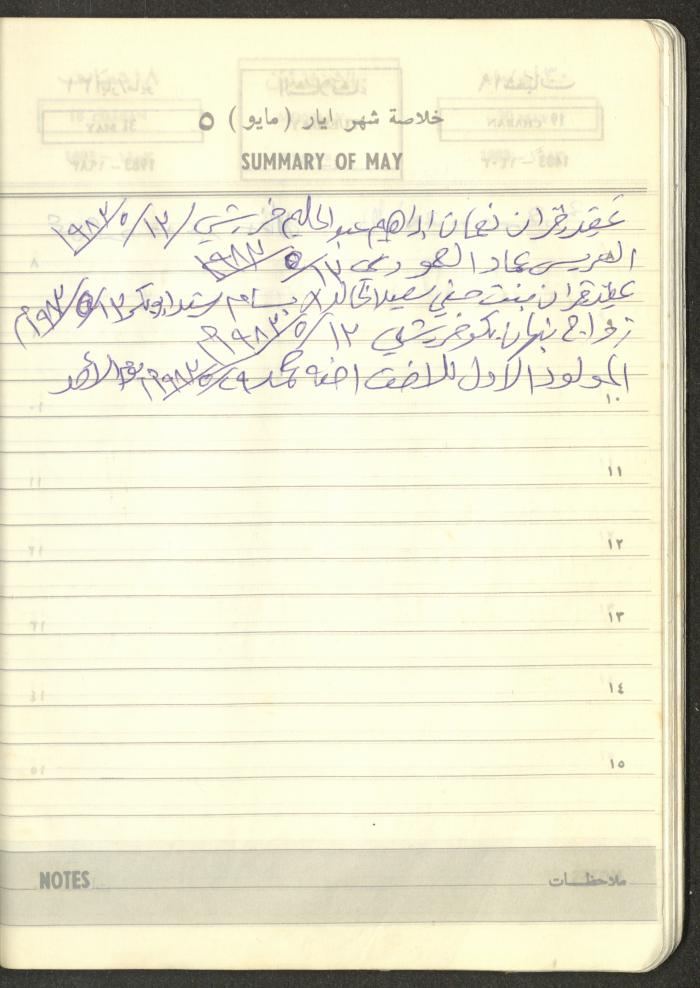 خلاصة شهر ايار (مايو) ٥
SUMMARY OF MAY
عقد قران نعمان ابراهيم عبد الحليم خريشي ١٣/٥/١٩٨٣
العريس عماد الحمود ١٣/٥/١٩٨٣
عقد قران بنت حسني سعيد الخالد / بسام رشيد ابوبكر ١٣/٥/١٩٨٣م
زواج نبهان بكر خريشي ١٢/٥/١٩٨٣م
المولود الاول للاخت احمد ٢٩/٥/١٩٨٣م يوم الأحد
١٠
١١
١٢
١٣
١٤
١٥
NOTES ملاحظات